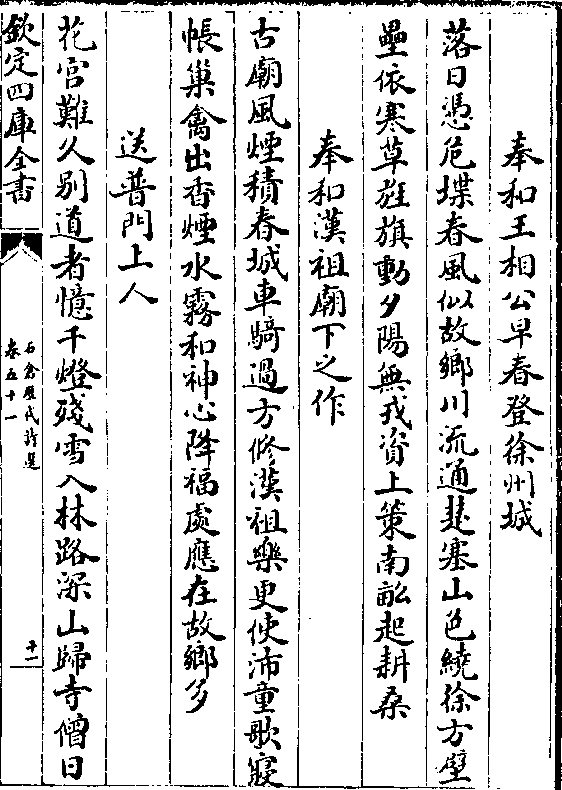 奉和王相公早春登徐州城
落日憑危堞春風似故鄉川流通楚塞山色繞徐方壁
壘依寒草旌旗動夕陽無戎資上策南畝起耕桑
奉和漢祖廟下之作
古廟風煙積春城車騎過方修漢祖樂更使沛童歌寢
帳巢禽出香煙水霧和神心降福處應在故鄉多
送普門上人
花宮難久別道者憶千燈殘雪入林路深山歸寺僧日
欽定四庫全書
石倉歷代詩選
卷五十一
十一